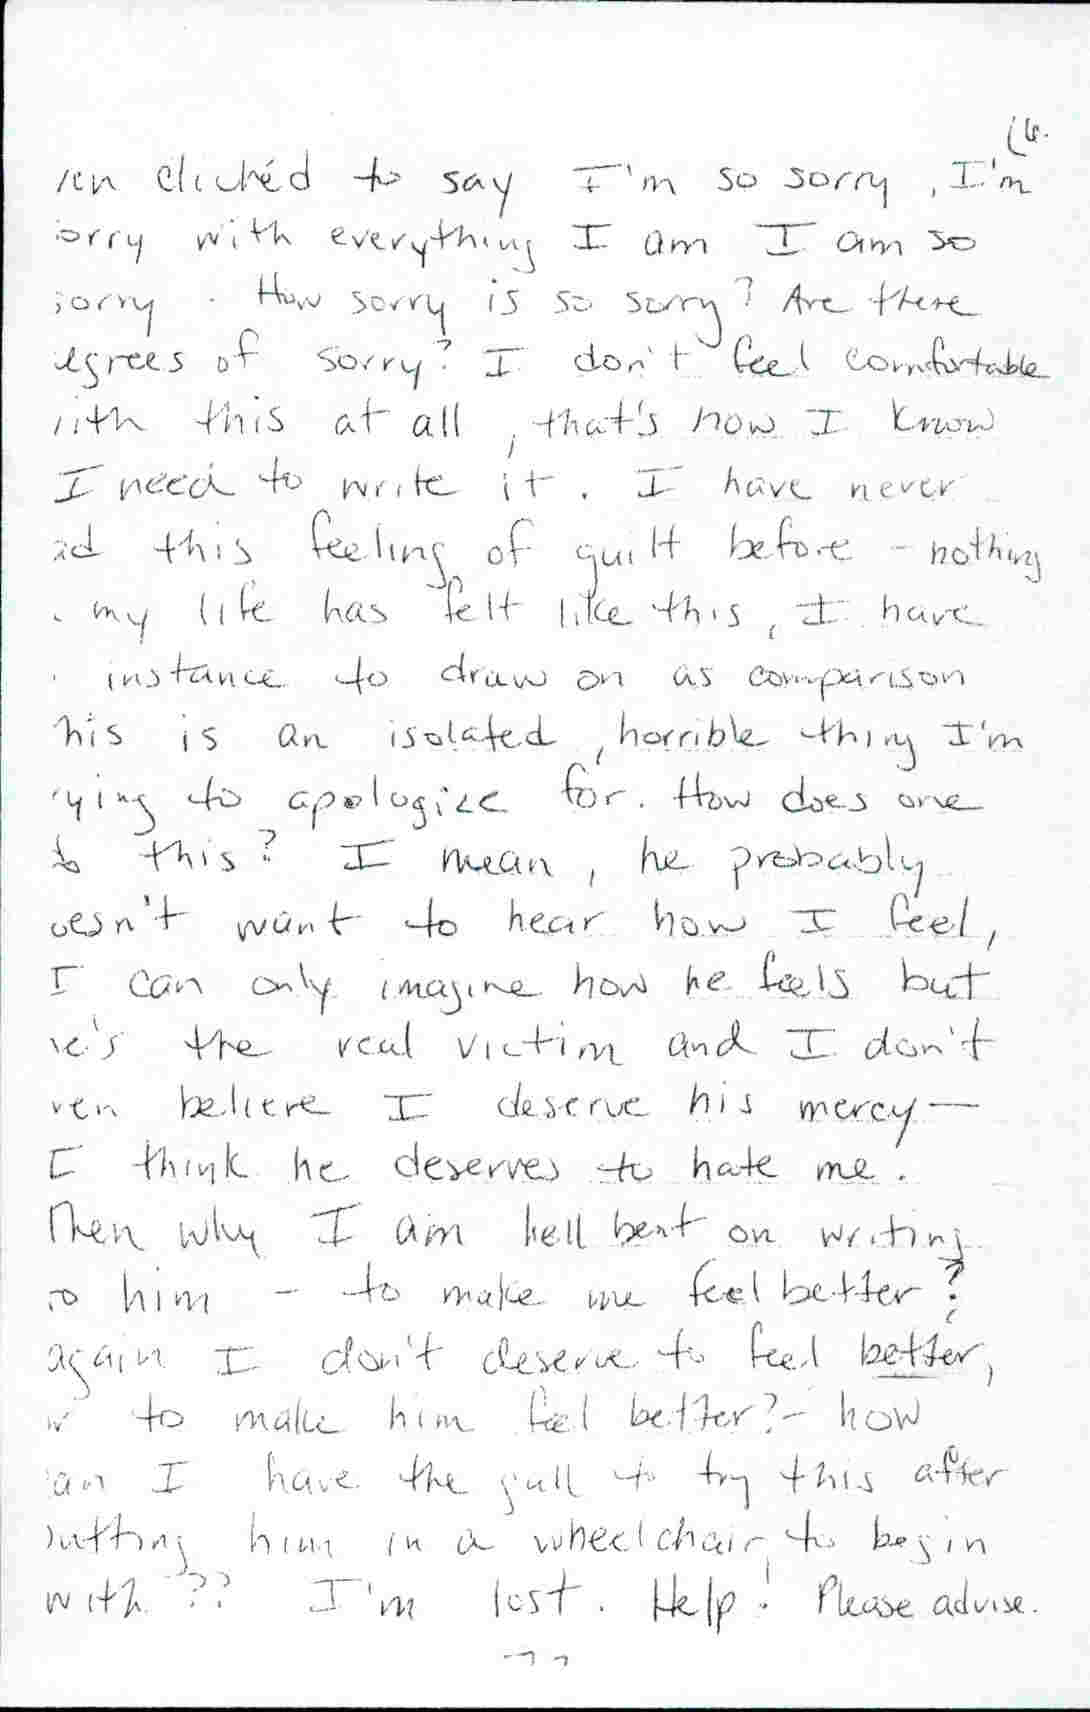 (6.
ven clichéd to say I'm so sorry, I'm
orry with everything I am I am so
sorry. How sorry is so sorry? Are there
egrees of sorry? I don't feel comfortable
with this at all, that's how I know
I need to write it. I have never
ad this feeling of guilt before - nothing
my life has felt like this, I have
instance to draw on as comparison
his is an isolated, horrible thing I'm
rying to apologize for. How does one
do this? I mean, he probably
oesn't want to hear how I feel,
I can only imagine how he feels but
he's the real victim and I don't
ven believe I deserve his mercy—
I think he deserves to hate me.
Then why I am hell bent on writing
to him - to make me feel better?
again I don't deserve to feel better,
or to make him feel better? - how
can I have the gall to try this after
putting him in a wheelchair, to begin
with?? I'm lost. Help! Please advise.